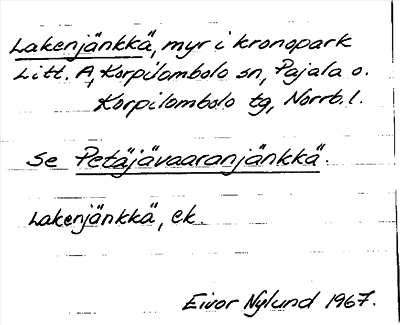 Lakenjänkkä, myr i kronopark
Litt. A, Korpilombolo sn, Pajala o.
Korpilombolo tg, Norrb. l.
Se Petäjävaaranjänkkä.
Lakenjänkkä, ek.
Eivor Nylund 1967.